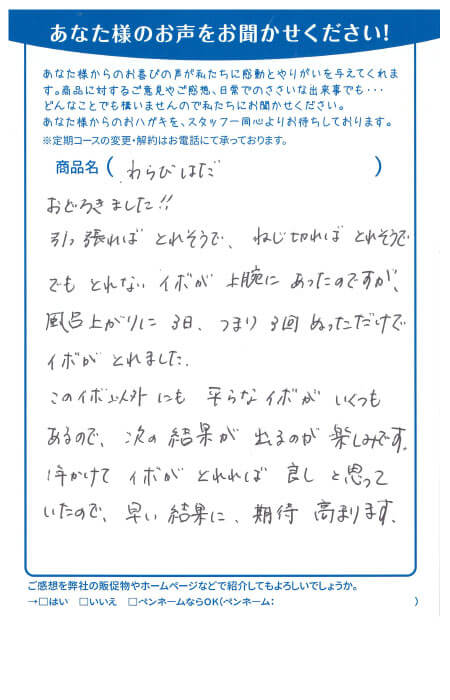 あなた様のお声をお聞かせください!
あなた様からのお喜びの声が私たちに感動とやりがいを与えてくれま
す。商品に対するご意見やご感想、日常でのささいな出来事でも・・・
どんなことでも構いませんので私たちにお聞かせください。
あなた様からのおハガキを、スタッフ一同心よりお待ちしております。
※定期コースの変更・解約はお電話にて承っております。
商品名(わらびはだ)
おどろきました!!
引っ張ればとれそうで、ねじ切ればとれそうで
でもとれないイボが上腕にあったのですが、
風呂上がりに3日、つまり3回ぬっただけで
イボがとれました.
このイボ以外にも平らなイボがいくつも
あるので、次の結果が出るのが楽しみです.
1年かけてイボがとれれば良しと思って
いたので、早い結果に、期待高まります.
ご感想を弊社の販促物やホームページなどで紹介してもよろしいでしょうか。
→□はい □いいえ □ペンネームならOK(ペンネーム: )